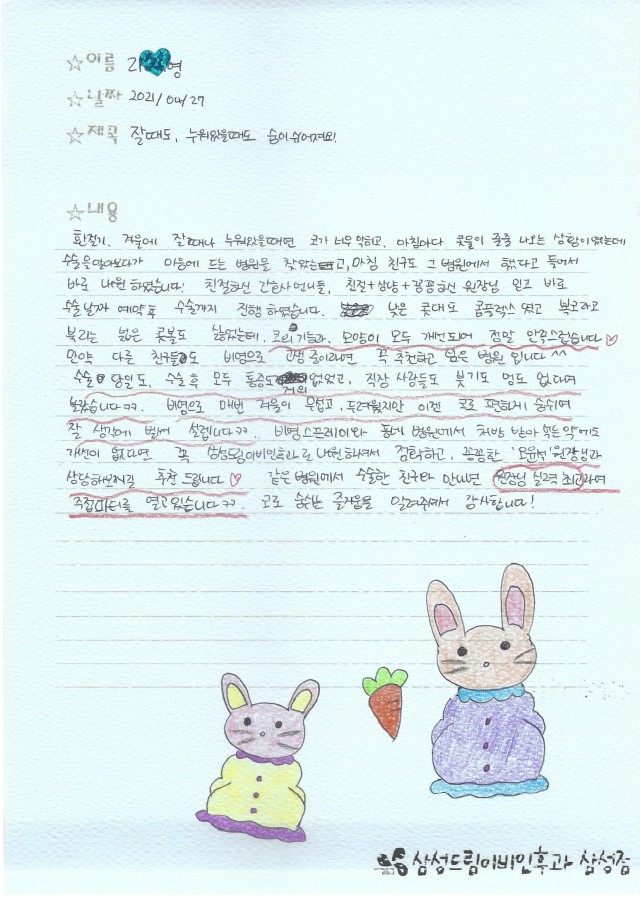 ☆이름 리 영
☆날짜 2021/04/27
☆제목 잘때도, 누워있을때도 숨이쉬어져요!
☆내용
환절기, 겨울에 잘때나 누워있을때면 코가 너무 막히고, 아침마다 콧물이 줄줄 나오는 상황이였는데
수술을알아보다가 마음에 드는 병원을 찾았고, 마침 친구도 그 병원에서 했다고 들어서
바로 내원하였습니다! 친절하신 간호사언니들, 친절+상냥+꼼꼼하신 원장님 믿고 바로
수술날짜 예약 후 수술까지 진행하였습니다. 낮은 콧대도 콤플렉스였고 복코라고
불리는 넓은 콧볼도 싫었는데, 코의 기능과 모양이 모두 개선되어 정말 만족스럽습니다♡
만약 다른 친구들도 비염으로 고생 중이라면 꼭 추천하고 싶은 병원 입니다^^
수술 당일도, 수술 후 모두 통증도 거의 없었고, 직장 사람들도 붓기도 멍도 없다며
놀랐습니다ㅋㅋ. 비염으로 매번 겨울이 무섭고, 두려웠지만 이젠 코로 편하게 숨쉬며
잘 생각에 벌써 설렙니다ㅋㅋ.. 비염스프레이와 동네 병원에서 처방 받아 먹는약에도
개선이 없다면 꼭 삼성드림이비인후과로 내원하셔서 정확하고, 꼼꼼한 원장님과
상담해보시길 추천 드립니다♡ 같은병원에서 수술한 친구와 만나면 원장님 실력 최고라며
주접파티를 열고있습니다ㅋㅋ. 코로 숨쉬는 즐거움을 알려주셔서 감사합니다!
삼성드림이비인후과 삼성점